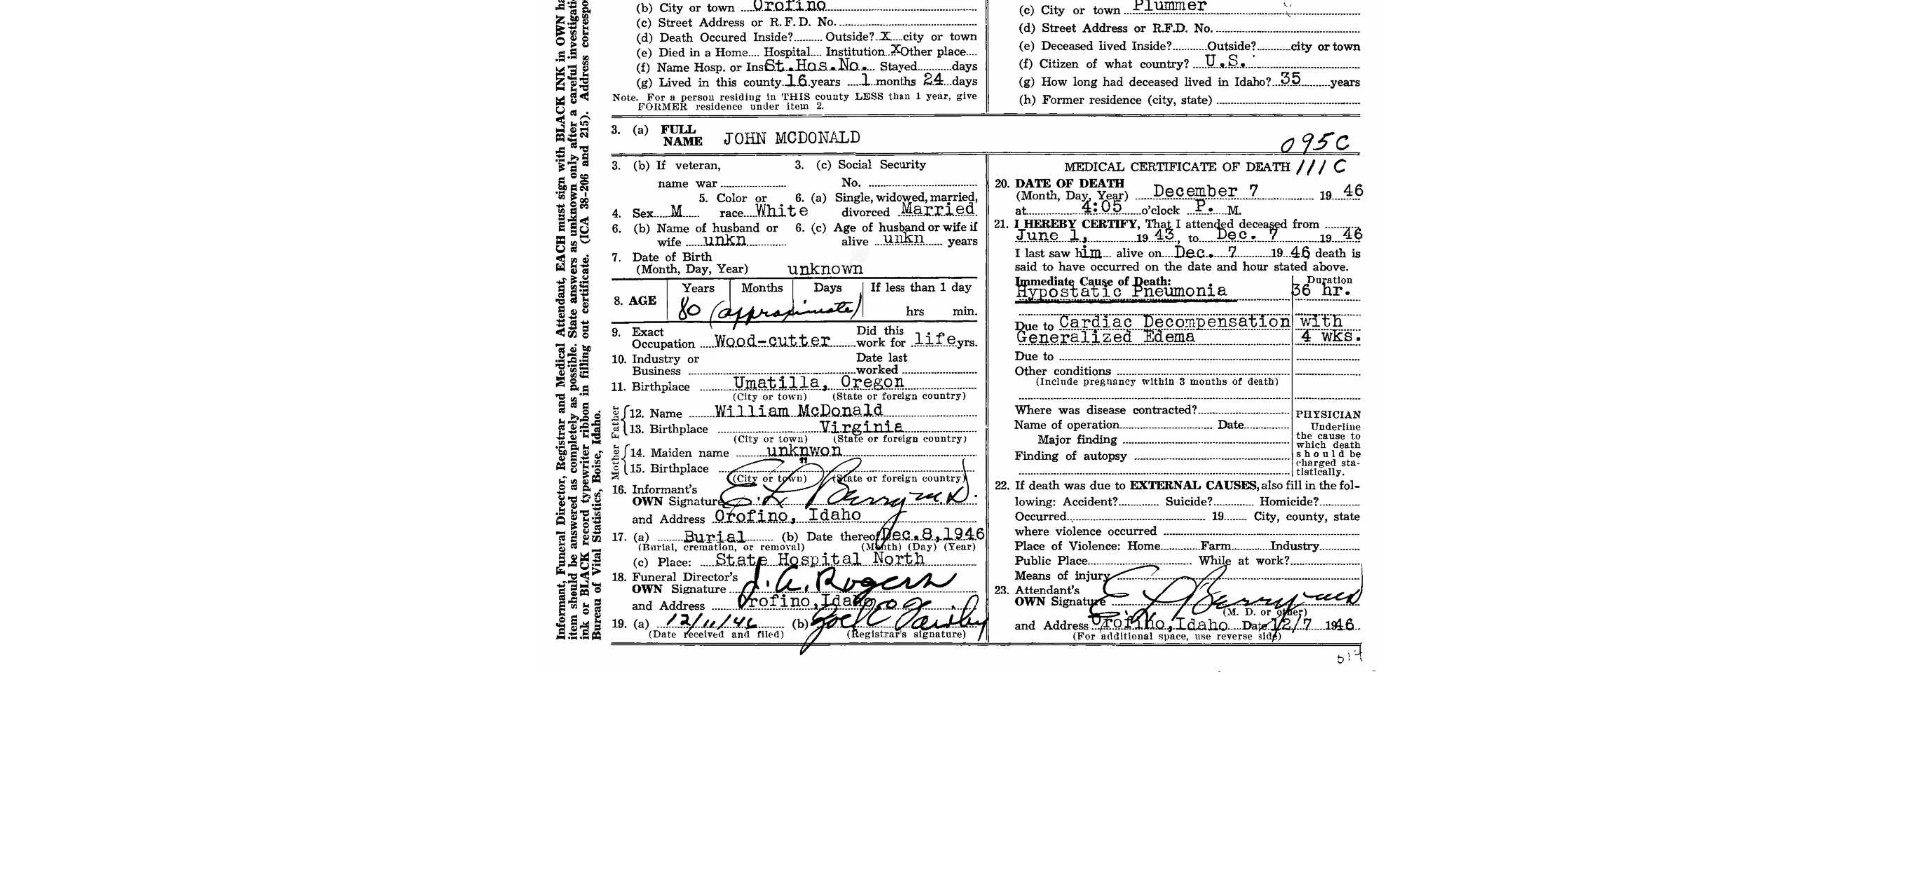 Informant, Funeral Director, Registrar and Medical Attendant, EACH must sign with BLACK INK in OWN
item should be answered as completely as possible. State answers as unknown only after a careful
ink or BLACK record typewriter ribbon in filling out certificate. (ICA 38-206 and 215). Address
Bureau of Vital Statistics, Boise, Idaho.
(b) City or town Orofino
(c) Street Address or R.F.D. No.
(d) Death Occured Inside? Outside? X city or town
(e) Died in a Home Hospital Institution X Other place
(f) Name Hosp. or Ins St. Hos. No. Stayed days
(g) Lived in this county 16 years 1 months 24 days
Note. For a person residing in THIS county LESS than 1 year, give
FORMER residence under item 2.
(c) City or town Plummer
(d) Street Address or R.F.D. No.
(e) Deceased lived Inside? Outside? city or town
(f) Citizen of what country? U.S.
(g) How long had deceased lived in Idaho? 35 years
(h) Former residence (city, state)
3. (a) FULL NAME JOHN MCDONALD
095C
3. (b) If veteran, 3. (c) Social Security
name war No.
5. Color or 6. (a) Single, widowed, married,
4. Sex M race White divorced Married
6. (b) Name of husband or 6. (c) Age of husband or wife if
wife unkn alive unkn years
7. Date of Birth
(Month, Day, Year) unknown
Years Months Days If less than 1 day
8. AGE 80 (approximate) hrs min.
9. Exact Did this
Occupation Wood-cutter work for life yrs.
10. Industry or Date last
Business worked
11. Birthplace Umatilla, Oregon
(City or town) (State or foreign country)
Father
12. Name William McDonald
13. Birthplace Virginia
(City or town) (State or foreign country)
Mother
14. Maiden name unknwon
15. Birthplace "
(City or town) (State or foreign country)
16. Informant's
OWN Signature E. L. Berry M.D.
and Address Orofino, Idaho
17. (a) Burial (b) Date thereof Dec. 8, 1946
(Burial, cremation, or removal) (Month) (Day) (Year)
(c) Place: State Hospital North
18. Funeral Director's
OWN Signature J. A. Rogers
and Address Orofino, Idaho
19. (a) 12/11/46 (b)
(Date received and filed) (Registrar's signature)
MEDICAL CERTIFICATE OF DEATH 111C
20. DATE OF DEATH
(Month, Day, Year) December 7 19 46
at 4:05 o'clock P. M.
21. I HEREBY CERTIFY, That I attended deceased from
June 1, 19 43, to Dec. 7 19 46
I last saw him alive on Dec. 7 19 46 death is
said to have occurred on the date and hour stated above.
Immediate Cause of Death: Duration
Hypostatic Pneumonia 36 hr.
Due to Cardiac Decompensation with
Generalized Edema 4 wks.
Due to
Other conditions
(Include pregnancy within 3 months of death)
Where was disease contracted?
Name of operation Date
Major finding
Finding of autopsy
PHYSICIAN
Underline
the cause to
which death
should be
charged sta-
tistically.
22. If death was due to EXTERNAL CAUSES, also fill in the fol-
lowing: Accident? Suicide? Homicide?
Occurred 19 City, county, state
where violence occurred
Place of Violence: Home Farm Industry
Public Place While at work?
Means of injury
23. Attendant's
OWN Signature E L Berry M.D.
(M. D. or other)
and Address Orofino, Idaho Date 12/7 1946
(For additional space, use reverse side)